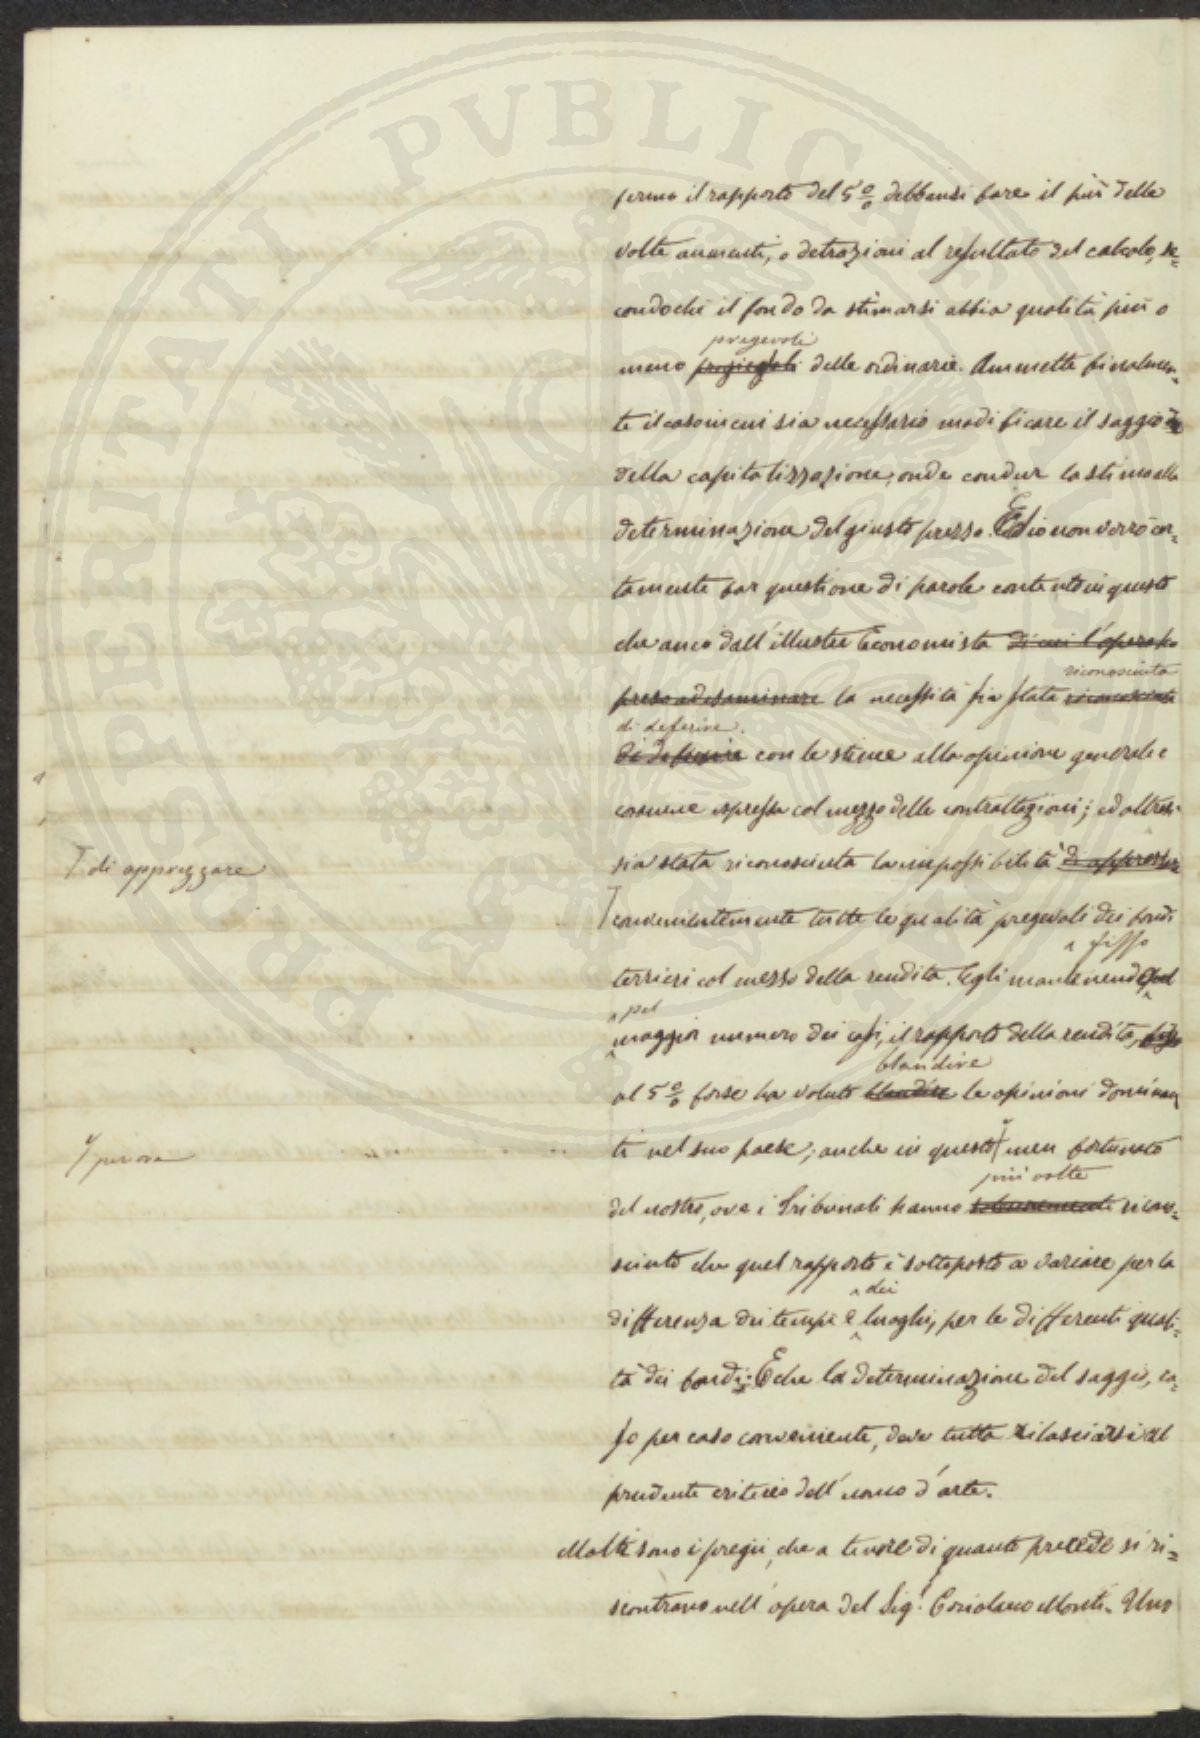 PROSPERITATI PUBLICAE
fermo il rapporto del 5 % debbansi fare il più delle
volte aumenti, o detrazioni al resultato del calcolo, se=
condoché il fondo da stimarsi abbia qualità più o
pregevoli
meno delle ordinarie. Ammette finalmen=
te il caso in cui sia necessario modificare il saggio
della capitalizzazione, onde condur la stima alla
determinazione del giusto prezzo. Ed io non verrò cer=
tamente far questione di parole contento in questo
che anco dall'illustre Economista di cui l'opera ho
riconosciuta
preso ad esaminare la necessità sia stata riconosciuta
di deferire
di deferire con le stime alla opinione generale e
comune espressa col mezzo delle contrattazioni; ed altresì
sia stata riconosciuta la impossibilità di apprezzare
T di apprezzare
T convenientemente tutte le qualità pregevoli dei fondi
fisso
terrieri col mezzo della rendita. Egli mantenendo pel
pel
maggior numero dei casi, il rapporto della rendita, fisso
blandire
al 5 % forse ha voluto blandire le opinioni dominan
ti nel suo paese; anche in questo men fortunato
per ora
più volte
del nostro, ove i Tribunali hanno ricono=
sciuto che quel rapporto è sottoposto a variare per la
dei
differenza dei tempi e luoghi, per le differenti quali=
tà dei fondi: E che la determinazione del saggio, ca=
so per caso conveniente, deve tutta rilasciarsi al
prudente criterio dell'uomo d'arte.
Molti sono i pregii, che a tenore di quanto precede si ri=
scontrano nell'opera del Sig.r Coriolano Monti. Uno